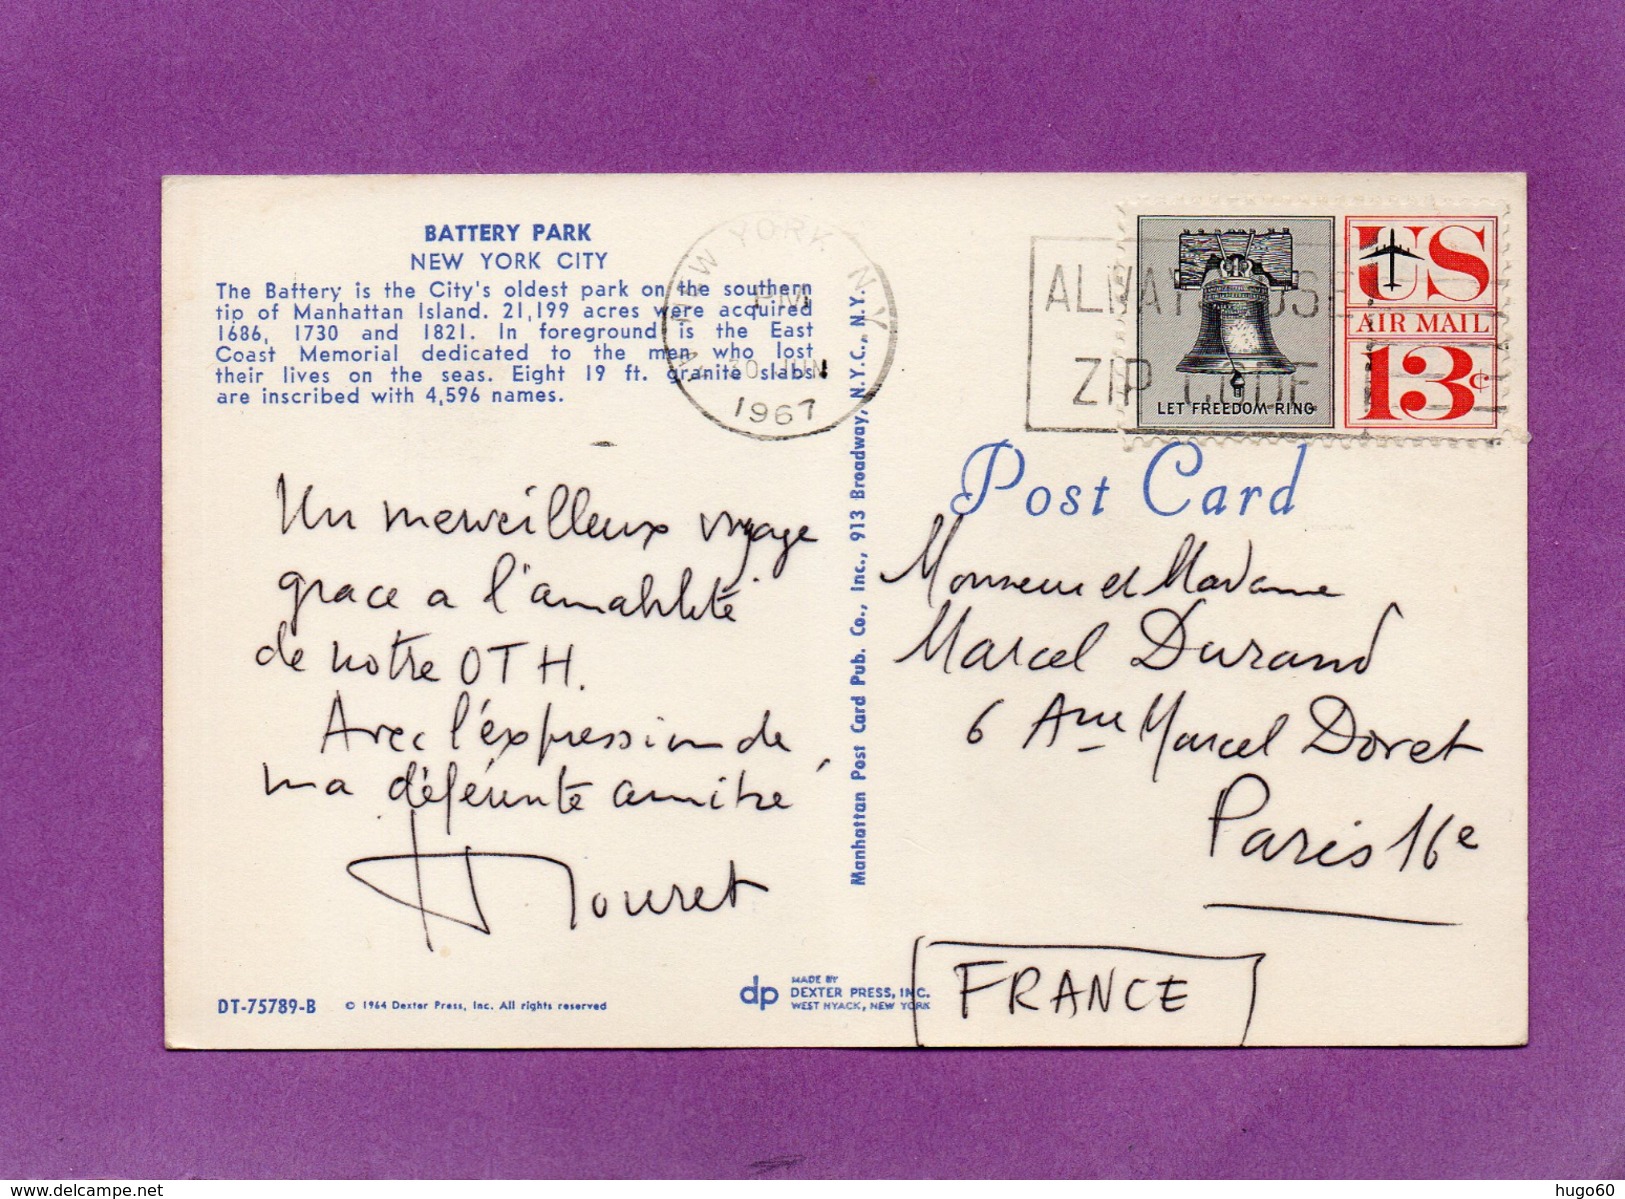 BATTERY PARK
NEW YORK CITY
The Battery is the City's oldest park on the southern
tip of Manhattan Island. 21,199 acres were acquired
1686, 1730 and 1821. In foreground is the East
Coast Memorial dedicated to the men who lost
their lives on the seas. Eight 19 ft. granite slabs
are inscribed with 4,596 names.
NEW YORK N.Y.
PM
30 JUN
1967
ALWAYS USE
ZIP CODE
LET FREEDOM RING
US
AIR MAIL
13¢
Post Card
Un merveilleux voyage
grace a l'amabilité
de notre OTH.
Avec l'expression de
ma déférente amitié
Mouret
Manhattan Post Card Pub. Co., Inc., 913 Broadway, N.Y.C., N.Y.
Monsieur et Madame
Marcel Durand
6 Ave Marcel Doret
Paris 16e
FRANCE
DT-75789-B
© 1964 Dexter Press, Inc. All rights reserved
dp
MADE BY
DEXTER PRESS, INC.
WEST NYACK, NEW YORK
www.delcampe.net
hugo60